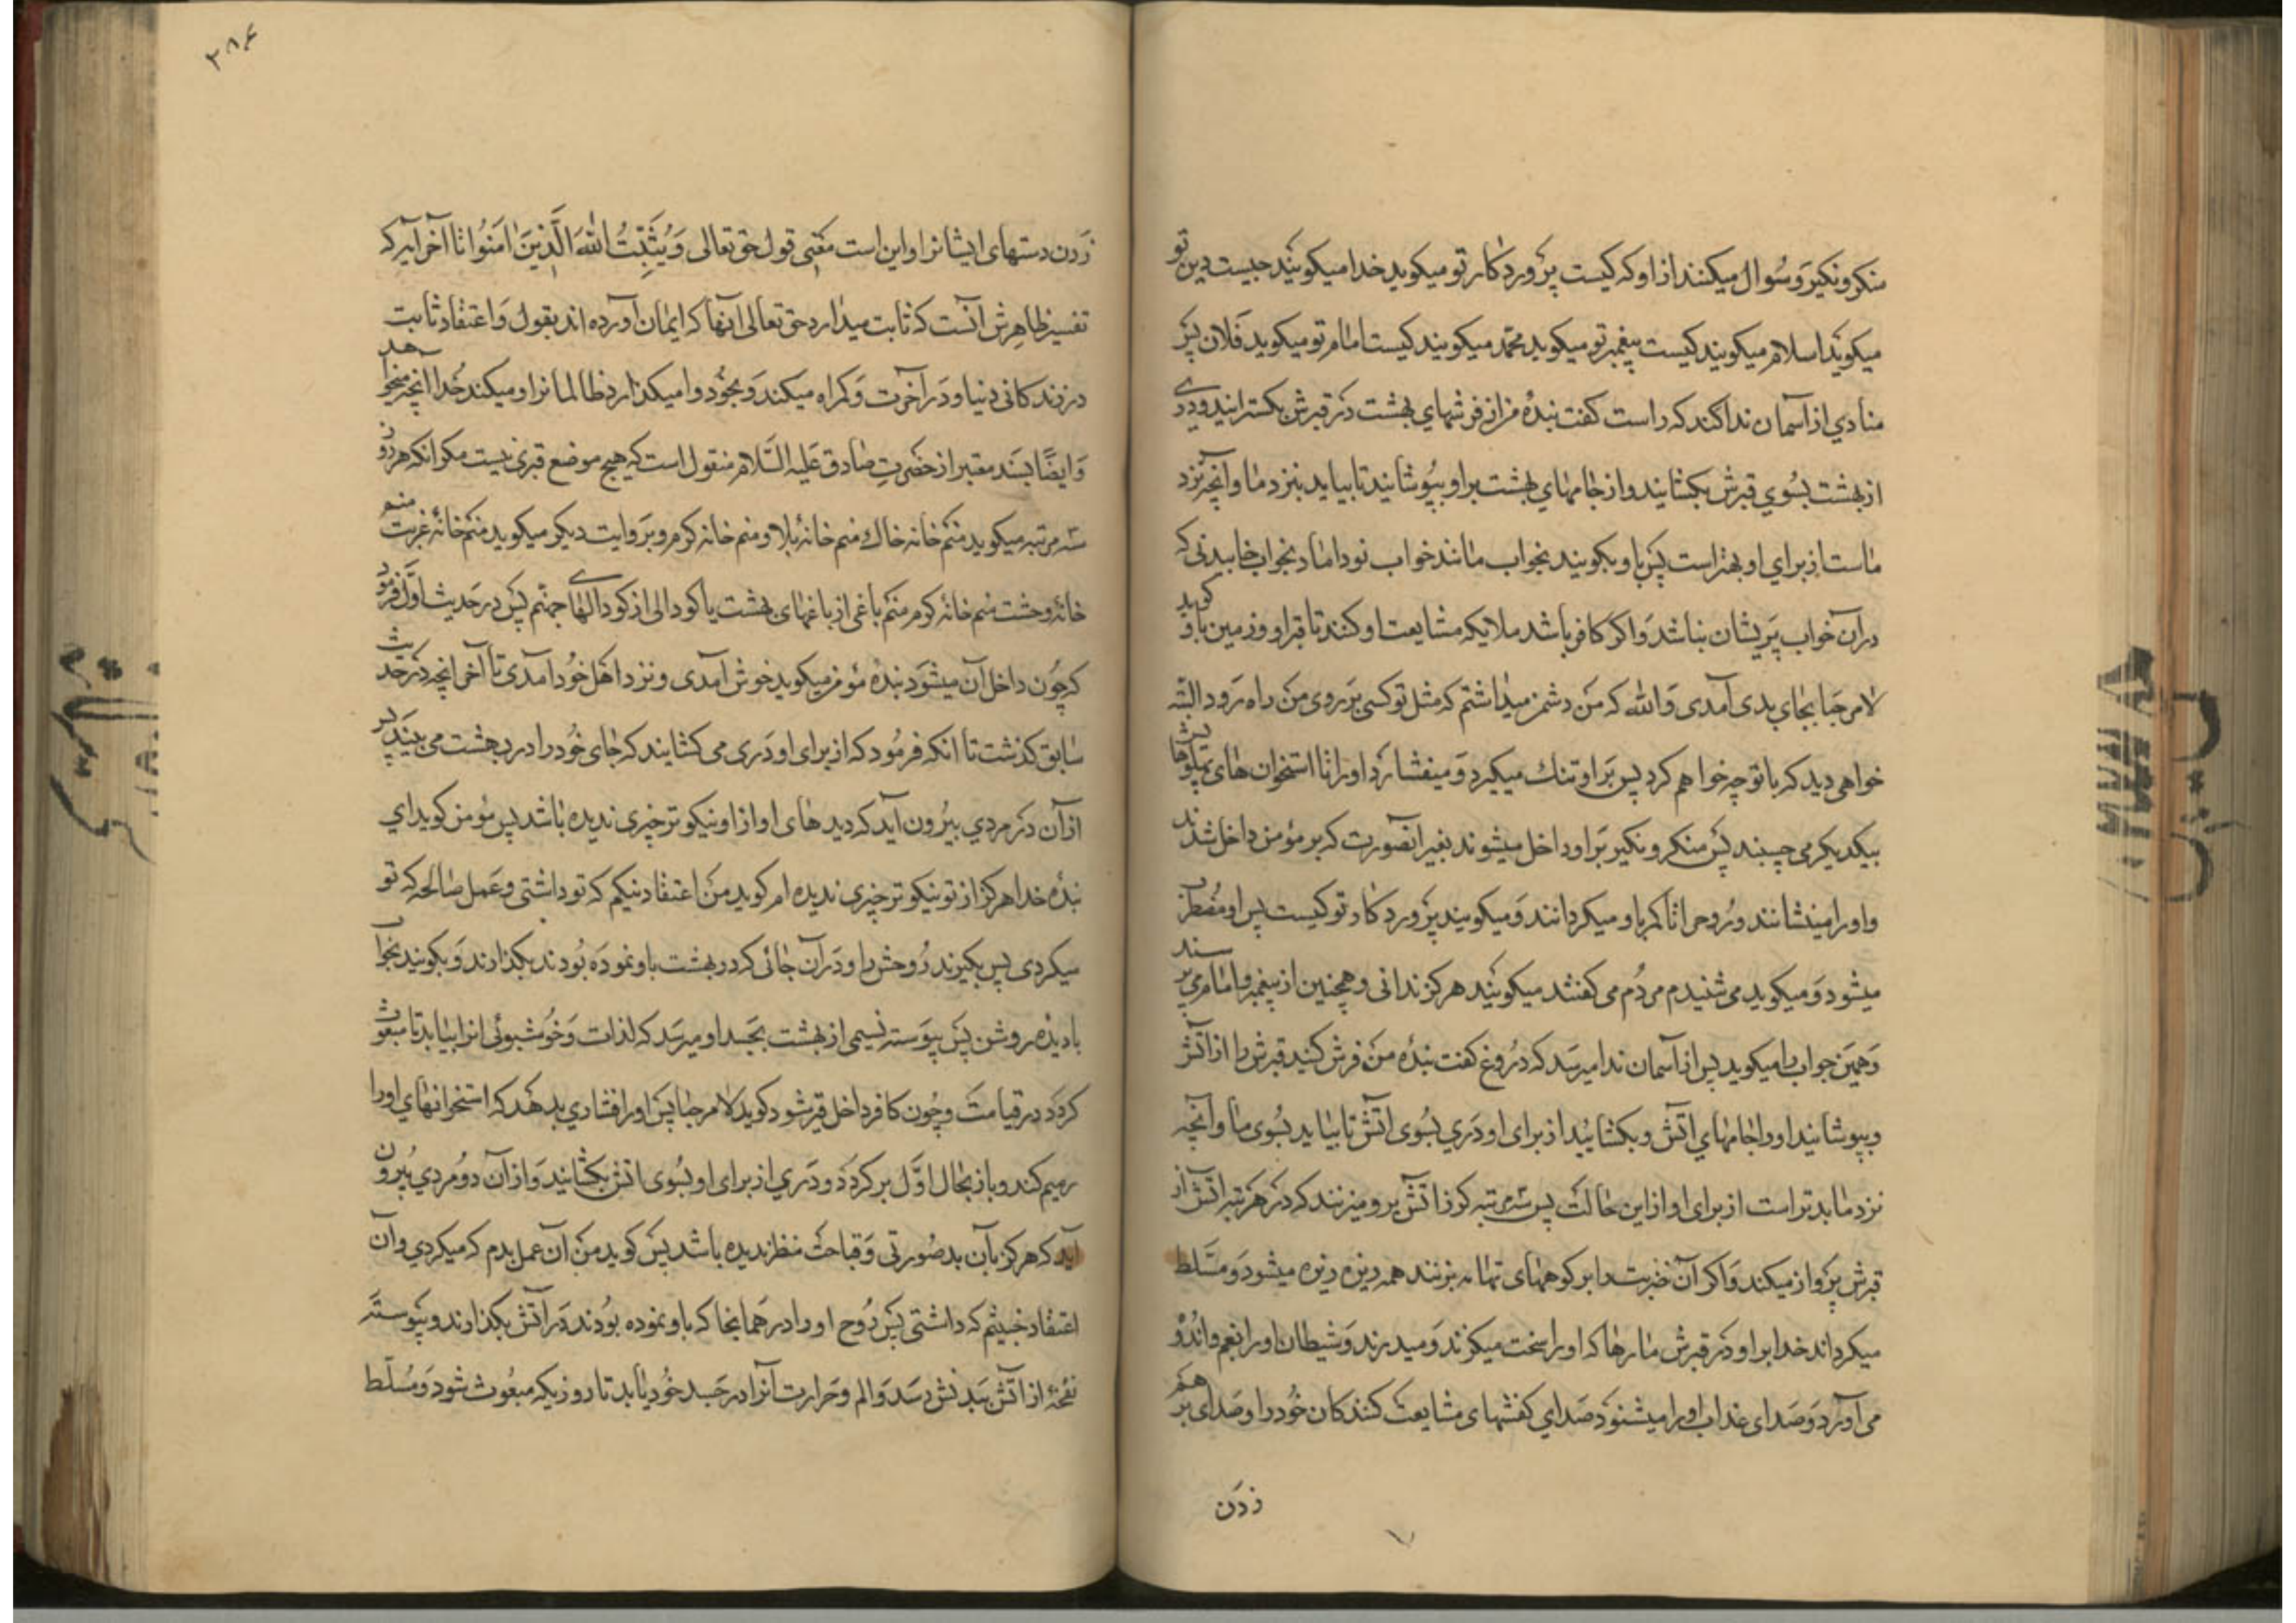 منکر و نکیر و سُوال میکنند از او که کیست پروردکار تو میکوید خدا میکویند چیست دین تو
میکوید اسلام میکویند کیست پیغمبر تو میکوید محمّد میکویند کیست امام تو میکوید فلان پس
منادی از آسمان ندا کند که راست کفت بندهٔ من از فرشهای بهشت در قبرش بکسترانید و دری
از بهشت بسُوی قبرش بکشایند و از جامهای بهشت بر او بپوشانید تا بیاید بنزد ما و آنچه نزد
ماست از برای او بهتر است پس باو بکویند بخواب مانند خواب نوداماد بخواب خابیدنی که
در آن خواب پریشان نباشد و اکر کافر باشد ملایکه مشایعت او کنند تا قبر او و زمین باو کوید
لا مرحبا بجای بدی آمدی و الله که من دشمن میداشتم که مثل تو کسی بر روی من راه رود البتّه
خواهی دید که با تو چه خواهم کرد پس بر او تنک میکیرد و میفشارد او را تا استخوان های پهلوهایش
بیکدیکر می چسبند پس منکر و نکیر بر او داخل میشوند بغیر انصورت که بر مؤمن داخل شدند
و او را مینشانند و روح را تا کمر باو میکردانند و میکویند پروردکار تو کیست پس او مضطرب
میشود و میکوید می شنیدم مردُم می کفتند میکویند هرکز ندانی و همچنین از پیغمبر و امام می پرسند
و همین جواب را میکوید پس از آسمان ندا میرسد که دروغ کفت بندهٔ من فرش کنید قبرش را از آتش
و بپوشانید او را جامهای آتش و بکشایید از برای او دری بسُوی آتش تا بیاید بسُوی ما و آنچه
نزد ما بدتر است از برای او از این حالت پس سه مرتبه کرز آتش برو میزنند که در هر مرتبه آتش از
قبرش پرواز میکند و اکر آن ضربت را بر کوههای تهامه بزنند همه ریزه ریزه میشود و مسَلط
میکرداند خدا بر او در قبرش مارها که او را سخت میکزند و میدرند و شیطان او را بغم و اندُوه
می آورد و صدای عذاب او را میشنود صدای کفشهای مشایعت کنندکان خُود را و صدای برهم
زدن
۲۸۴
زدن دستهای ایشانرا و این است معنی قول حق تعالی وَ یُثَبِّتُ اللهُ الَّذینَ اٰمَنُوا تا آخر آیه که
تفسیر ظاهرش آنست که ثابت میدارد حق تعالی آنها که ایمان آورده اند بقول و اعتقاد ثابت
در زندکانی دنیا و در آخرت و کمراه میکند و بخود وا میکذارد ظالمانرا و میکند خُدا انچه میخواهد
و ایضًا بسند معتبر از حضرتِ صٰادق علیه السّلام منقول است که هیچ موضع قبری نیست مکر انکه هر روز
سه مرتبه میکوید منم خانه خاک و منم خانهٔ بلا و منم خانه کرم و بروایت دیکر میکوید منم خانهٔ غربت منم
خانهٔ وحشت منم خانهٔ کرم منم باغی از باغهای بهشت یا کودالی از کودالهای جهنّم پس در حدیث اوّل فرمود
که چون داخل آن میشود بندهٔ مؤمن میکوید خوش آمدی و نزد اهل خُود آمدی تا آخر انچه در حدیث
سابق کذشت تا انکه فرمُود که از برای او دری می کشایند که جای خُود را در بهشت می بیند پس
از آن در مردی بیرون آید که دیدهای او از او نیکو تر چیزی ندیده باشد پس مؤمن کوید ای
بندهٔ خدا هرکز از تو نیکو تر چیزی ندیده ام کوید من اعتقاد نیکم که تو داشتی و عمل صالحه که تو
میکردی پس بکیرند روحش را و در آن جائی که در بهشت باو نموده بُودند بکذارند و بکویند بخواب
با دیدهٔ روشن پس پیوسته نسیمی از بهشت بجسد او میرسد که لذات و خُوشبوئی انرا بیابد تا مبعوث
کردد در قیامت و چُون کافر داخل قبر شود کوید لا مرحبا پس او را فشاری بدهد که استخوانهای او را
رمیم کند و باز بحال اوّل بر کردد و دری از برای او بسُوی آتش بکشایند و از آن در مردی بیرون
آید که هرکز بآن بد صُورتی و قباحت منظر ندیده باشد پس کوید من آن عمل بدم که میکردی و آن
اعتقاد خبیثم که داشتی پس رُوح او را در همانجا که باو نموده بُودند در آتش بکذارند و پیوسته
نفحهٔ از آتش ببدنش رسد و الم و حرارت آنرا در جسد خُود یابد تا روزیکه مبعُوث شود و مُسلّط